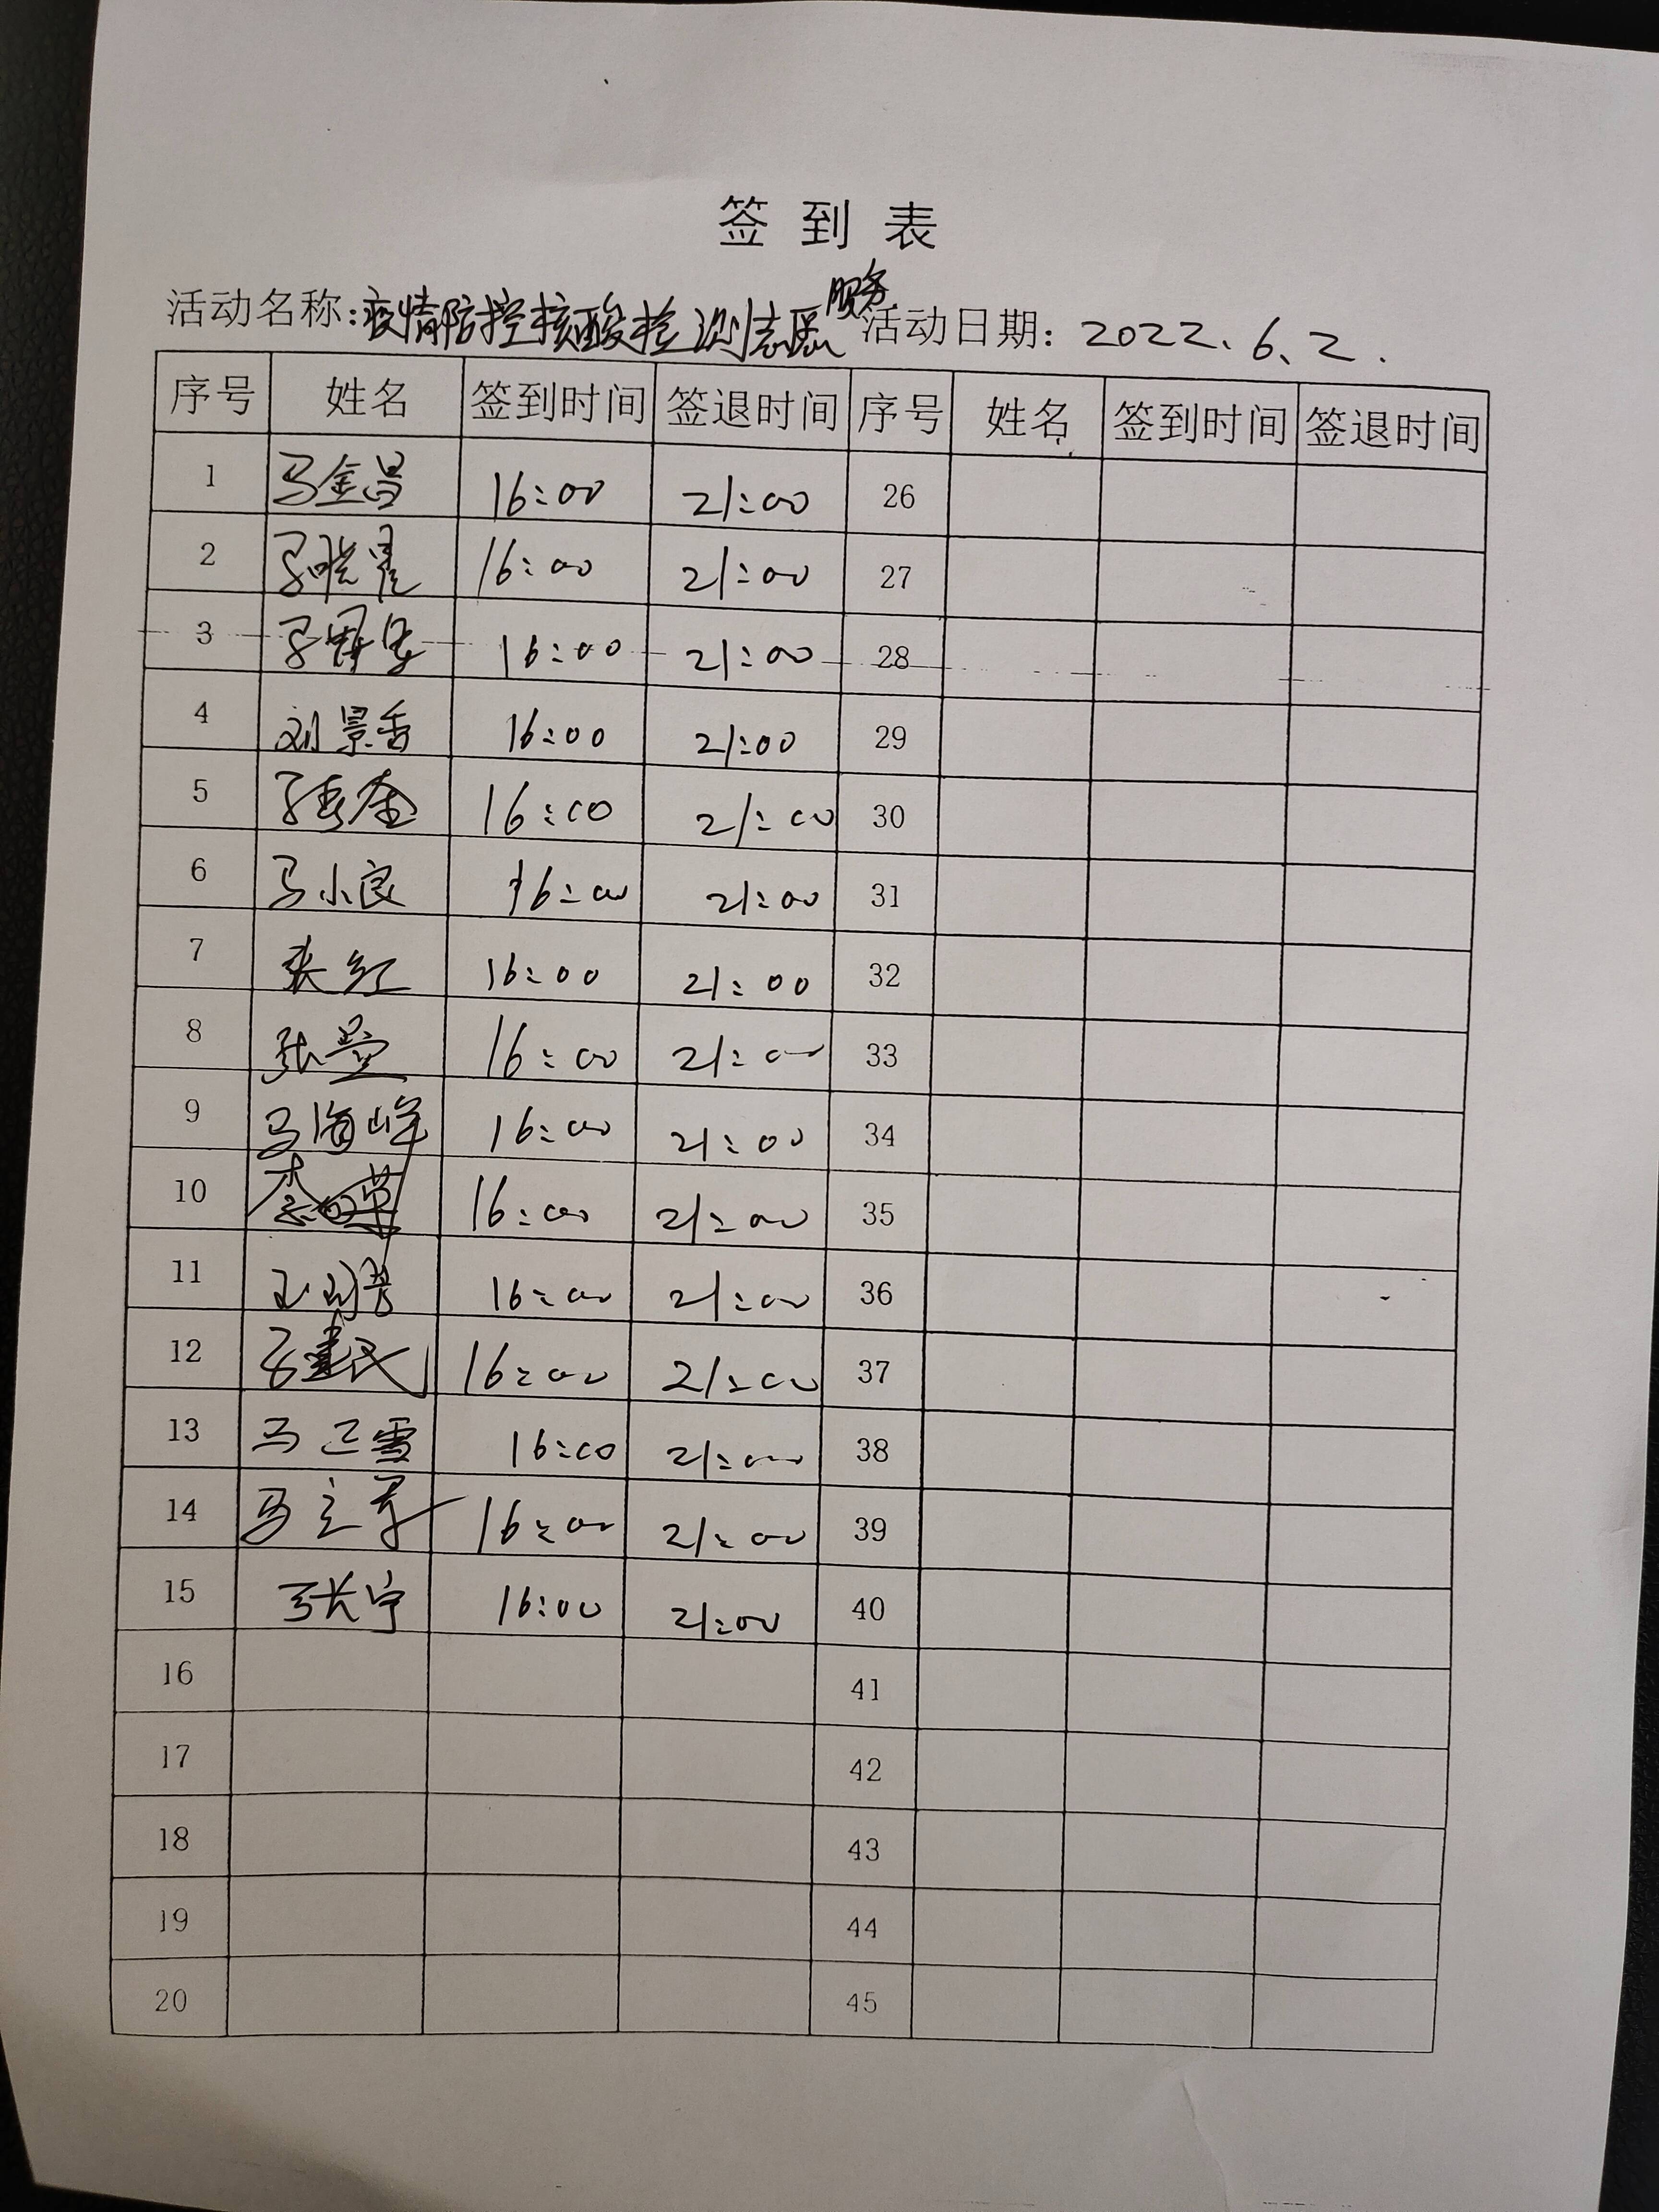 签到表
活动名称:疫情防控核酸检测志愿服务 活动日期: 2022.6.2.
序号 姓名 签到时间 签退时间 序号 姓名 签到时间 签退时间
1 马金昌 16:00 21:00 26
2 16:00 21:00 27
3 16:00 21:00 28
4 刘景香 16:00 21:00 29
5 16:00 21:00 30
6 马小良 16:00 21:00 31
7 张红 16:00 21:00 32
8 16:00 21:00 33
9 马海峰 16:00 21:00 34
10 16:00 21:00 35
11 16:00 21:00 36
12 16:00 21:00 37
13 16:00 21:00 38
14 16:00 21:00 39
15 张宁 16:00 21:00 40
16 41
17 42
18 43
19 44
20 45